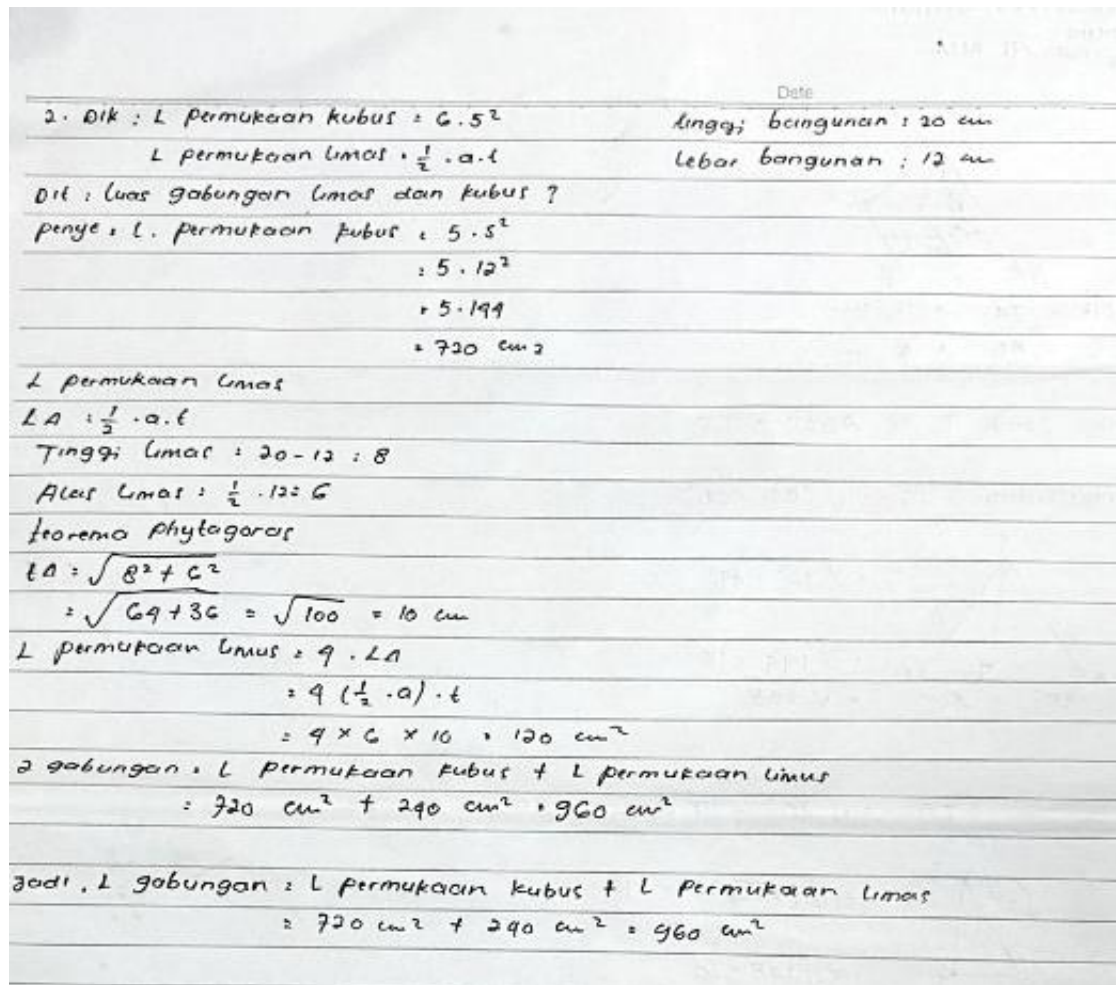 Date
2. Dik : L permukaan kubus = 6.s² tinggi bangunan : 20 cm
L permukaan limas = 1/2 .a.t lebar bangunan : 12 cm
Dit : luas gabungan limas dan kubus ?
penye : L. permukaan kubus : 5.s²
: 5 . 12²
= 5.144
= 720 cm2
L permukaan limas
LΔ : 1/2 .a.t
Tinggi limas : 20-12 : 8
Alas limas : 1/2 .12 = 6
teorema phytagoras
tΔ = √8² + 6²
= √64+36 = √100 = 10 cm
L permukaan limus : 4 . LΔ
: 4 (1/2 .a) .t
= 4 x 6 x 10 = 120 cm²
2 gabungan = L permukaan kubus + L permukaan limus
= 720 cm² + 240 cm² = 960 cm²
Jadi, L gabungan = L permukaan kubus + L permukaan limas
= 720 cm² + 240 cm² = 960 cm²